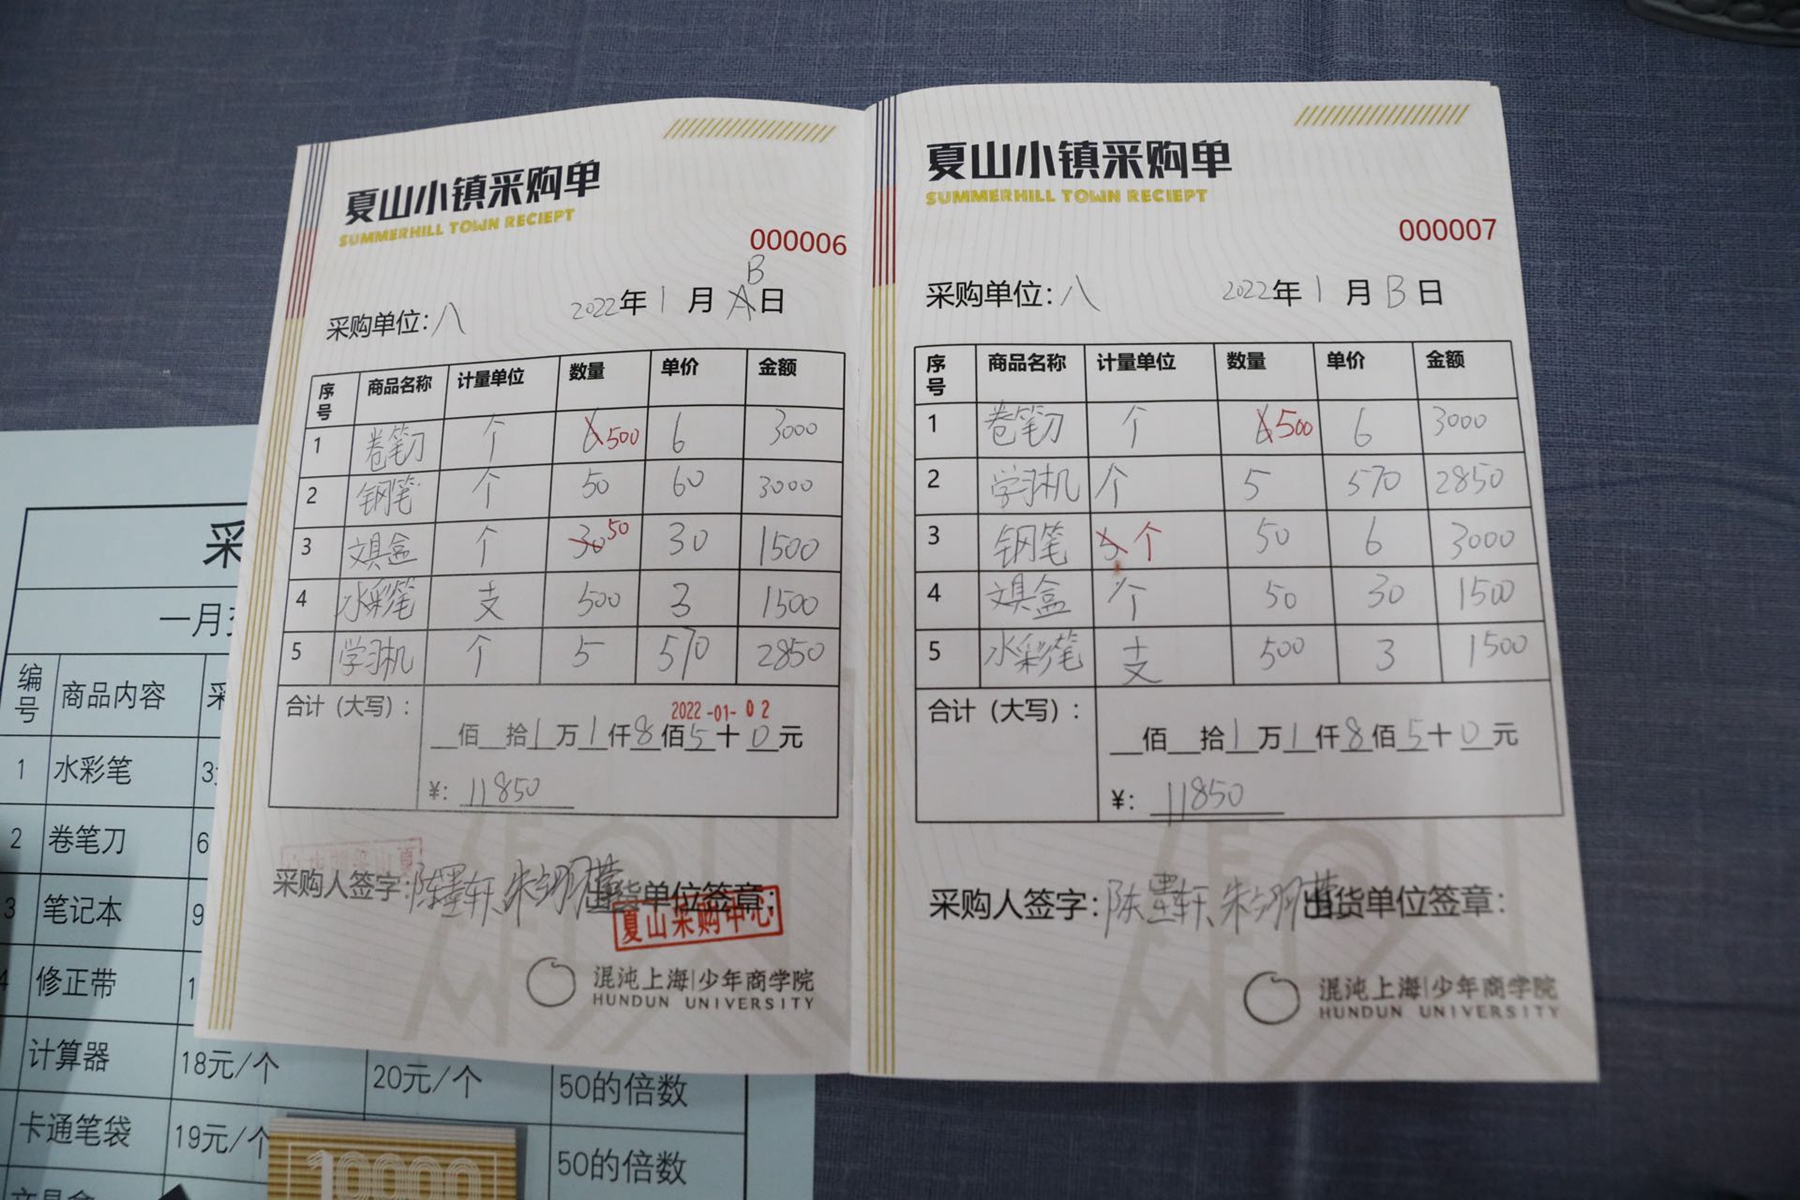 夏山小镇采购单
SUMMERHILL TOWN RECIEPT
000006
采购单位：八 2022年1月B日
序号 商品名称 计量单位 数量 单价 金额
1 卷笔刀 个 500 6 3000
2 钢笔 个 50 60 3000
3 文具盒 个 30 50 30 1500
4 水彩笔 支 500 3 1500
5 学习机 个 5 570 2850
合计（大写）：
2022-01-02
__佰__拾1万1仟8佰5十0元
¥: 11850
采购人签字: 陈墨轩、朱 出货单位签章:
夏山采购中心
混沌上海|少年商学院
HUNDUN UNIVERSITY
夏山小镇采购单
SUMMERHILL TOWN RECIEPT
000007
采购单位：八 2022年1月B日
序号 商品名称 计量单位 数量 单价 金额
1 卷笔刀 个 500 6 3000
2 学习机 个 5 570 2850
3 钢笔 个 50 6 3000
4 文具盒 个 50 30 1500
5 水彩笔 支 500 3 1500
合计（大写）：
__佰__拾1万1仟8佰5十0元
¥: 11850
采购人签字: 陈墨轩、朱 出货单位签章:
混沌上海|少年商学院
HUNDUN UNIVERSITY
采
一月
编号 商品内容 采
1 水彩笔 3
2 卷笔刀 6
3 笔记本 9
4 修正带 1
计算器 18元/个 20元/个 50的倍数
卡通笔袋 19元/个 50的倍数
文具盒
10000